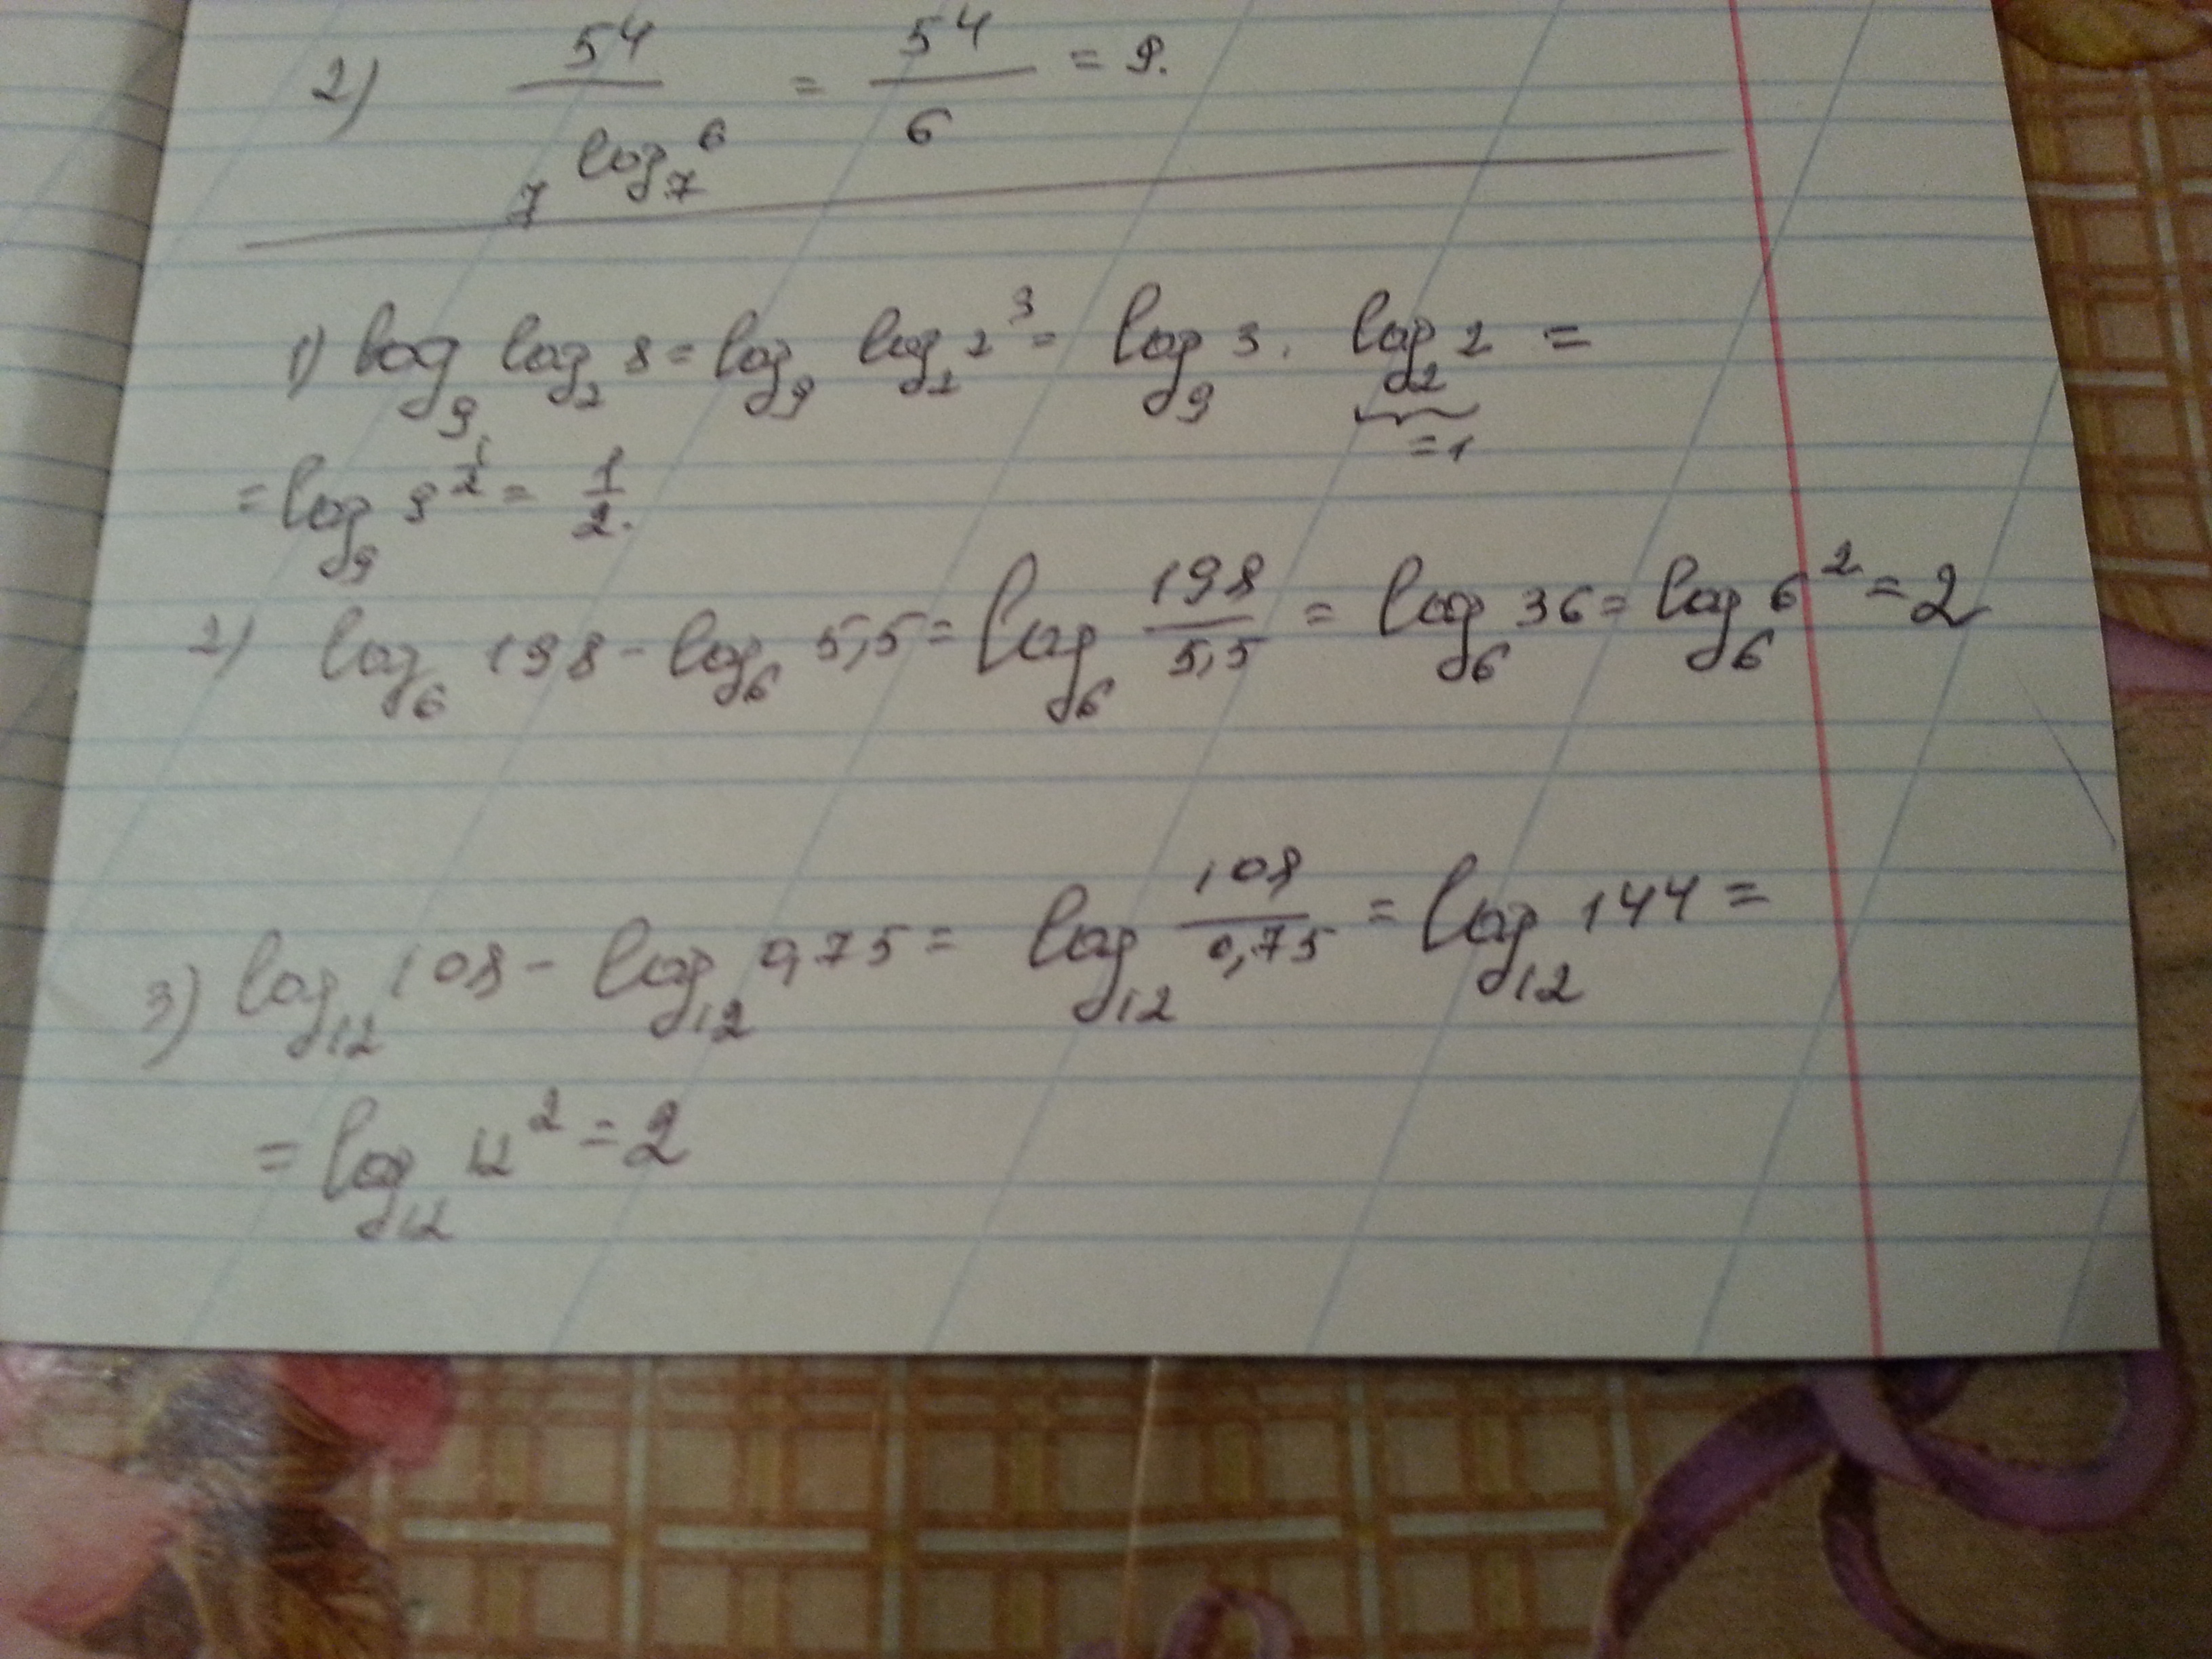 2) 54 / 7^(log₇6) = 54/6 = 9.
1) log₉ log₂ 8 = log₉ log₂ 2³ = log₉ 3 · log₂ 2 =
= 1
= log₉ 9^(1/2) = 1/2.
2) log₆ 198 - log₆ 5,5 = log₆ 198/5,5 = log₆ 36 = log₆ 6² = 2
3) log₁₂ 108 - log₁₂ 0,75 = log₁₂ 108/0,75 = log₁₂ 144 =
= log₁₂ 12² = 2